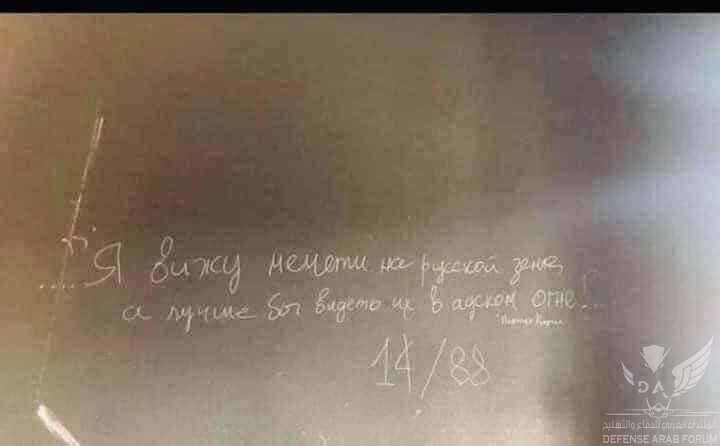 ....Я вижу мечети на русской земле,
а лучше бы видеть их в адском огне....
14/88
DA
المنتدى العربي للدفاع والتسليح
DEFENSE ARAB FORUM